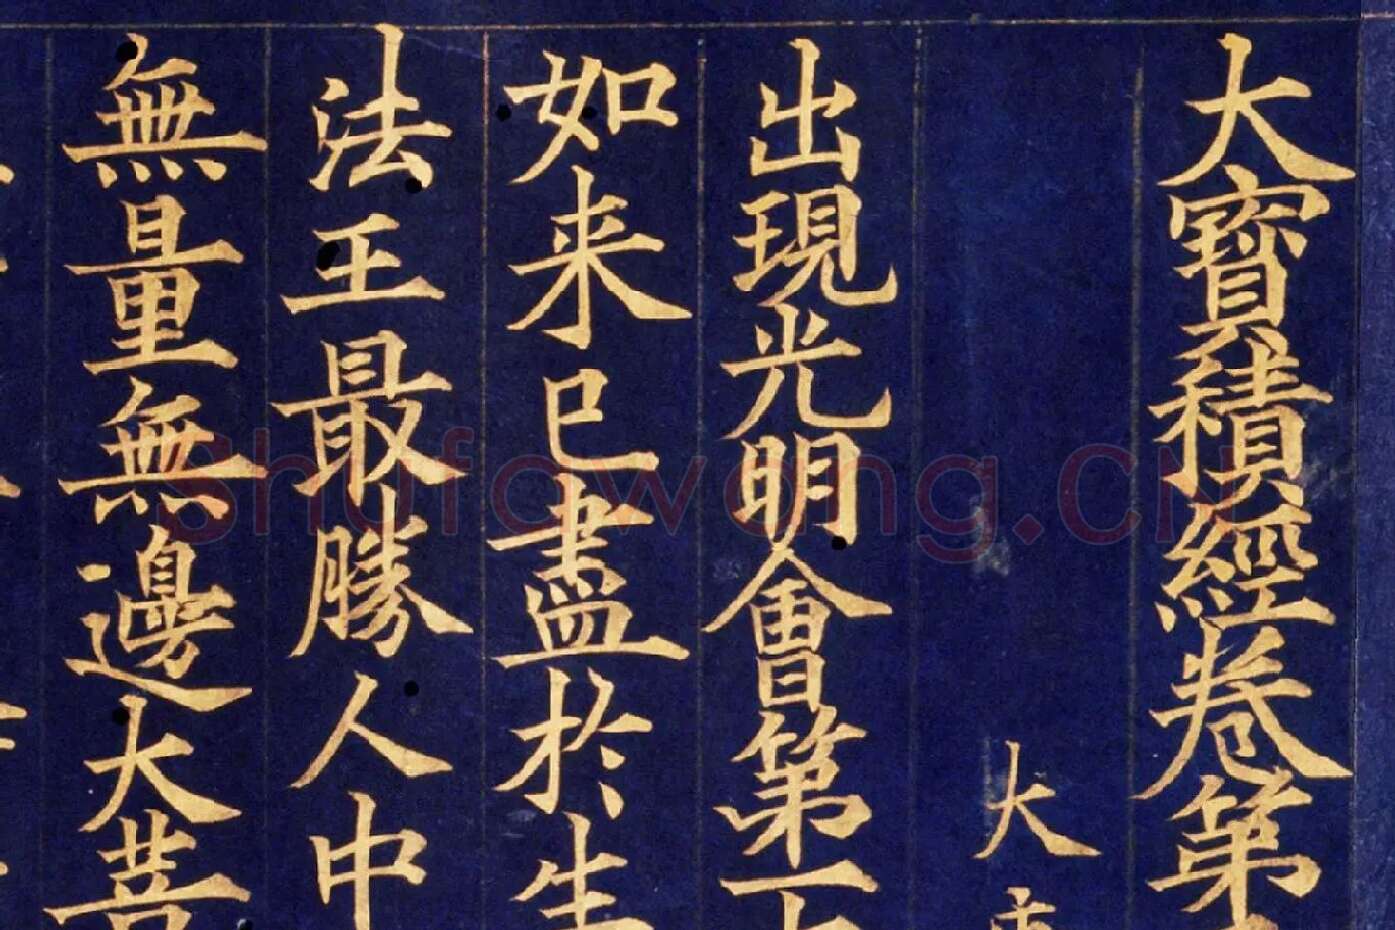 大寶積經卷第
大
出現光明會第十
如来已盡於生
法王最勝人中
無量無邊大菩
Shufawang.CN